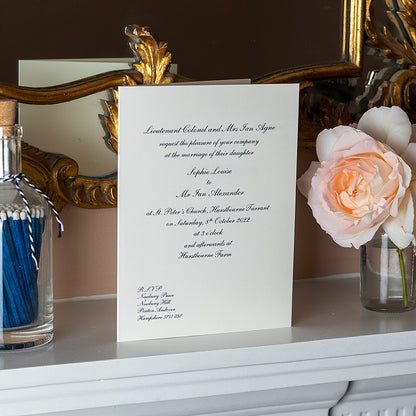 Lieutenant Colonel and Mrs Ian Agne
request the pleasure of your company
at the marriage of their daughter
Sophie Louise
to
Mr Ian Alexander
at St. Peter's Church, Hurstbourne Tarrant
on Saturday, 8th October 2022
at 3 o'clock
and afterwards at
Hurstbourne Farm
R.S.V.P.
Newbury Place
Newbury Hill
Penton Andover
Hampshire SP11 0SP